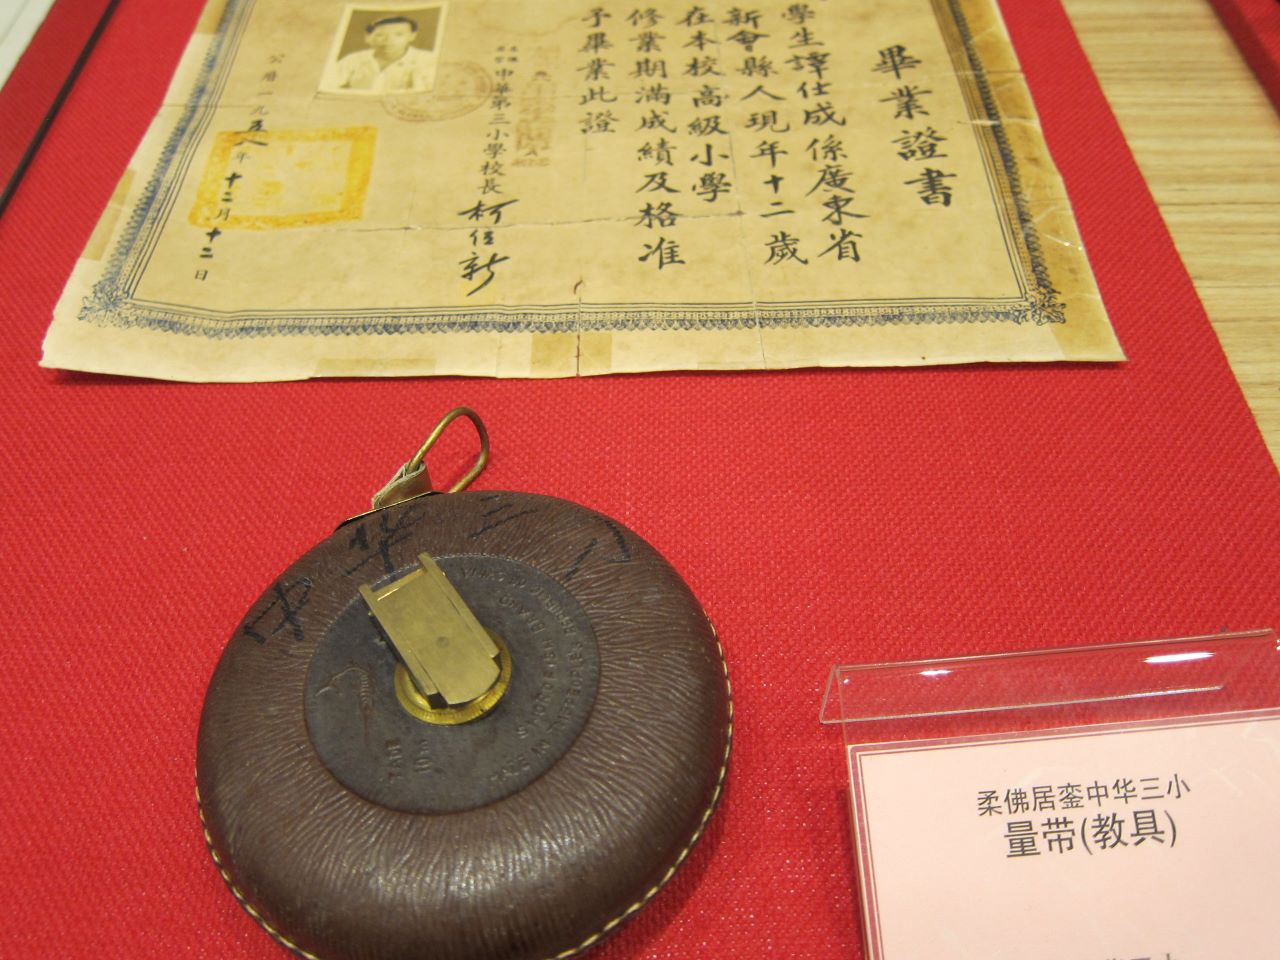 畢業證書
學生譚仕成係廣東省
新會縣人現年十二歲
在本校高級小學
修業期滿成績及格准
予畢業此證
中華第三小學校長
公曆一九五八年十二月十二日
中华三小
MADE IN THE PEOPLE'S REPUBLIC OF CHINA
柔佛居銮中华三小
量带(教具)